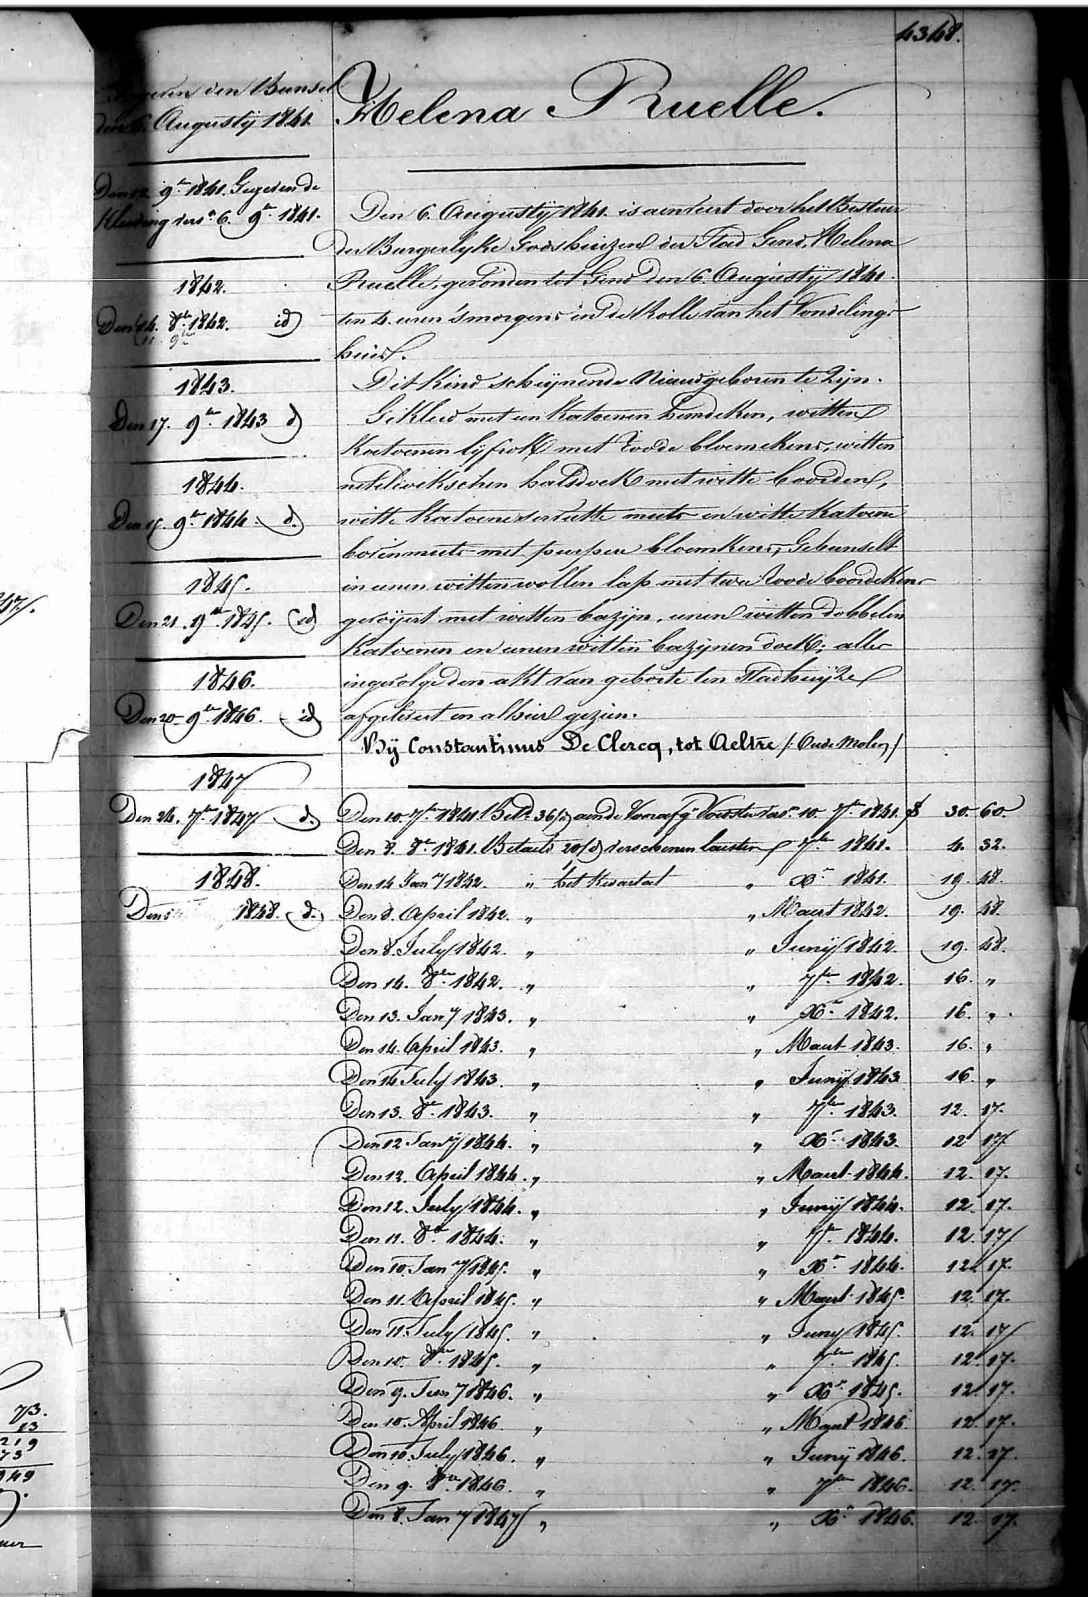 4348.
Gegeven den Bunsel
den 6. Augusty 1841.
Den 12. 9.br 1841. Gegeven de
Kleeding vers. 6. 9.br 1841.
1842.
Den 14. 8.br 1842. id
11. 9.br
1843.
Den 17. 9.br 1843 d
1844.
Den 15. 9.br 1844. d.
1845.
Den 21. 9.br 1845. id
1846.
Den 20 9.br 1846. id
1847
Den 24. 7.br 1847 d.
1848.
Den 1848. d.
Helena Ruelle.
Den 6. Augusty 1841. is aenveert door het Bestuur
der Burgerlyke Godshuizen der Stad Gend, Helena
Ruelle, gevonden tot Gend den 6. Augusty 1841.
ten 4. uren 's morgens in de Rolle van het Vondelings-
huis.
Dit Kind schynende Nieuwgeboren te Zyn.
Gekleed met een Katoenen hemdeken, witten
Katoenen lyfrok met roode bloemekens, witten
neteldoekschen halsdoek met witte boorden,
witte Katoene muts en witte Katoene
bovenmuts met purpere bloemkens, Gebunselt
in eenen witten wollen lap met twee roode boordekens
gevoyert met witten bazyn, eenen witten dobbelen
Katoenen en eenen witten bazynen doek; alles
ingevolge den akt van geborte ten Stadhuyze
afgelevert en alhier gezien.
Bÿ Constantinus De Clercq, tot Aeltre /: Oude Molen /
Den 10. 7.br 1841. Bet. 36/ aen de Voorafg. Voedster vers. 10. 7.br 1841. f 30. 60
Den 8. 8.br 1841. Betaeld 20/ verschenen laesten 7.br 1841. 4. 32.
Den 14 Jan.y 1842. " het Kwartael " X.br 1841. 19. 48.
Den 8. April 1842. " " Maert 1842. 19. 48.
Den 8. July 1842. " " Junÿ 1842. 19. 48.
Den 14. 8.br 1842. " " 7.br 1842. 16. "
Den 13. Jan.y 1843. " " X.br 1842. 16. "
Den 14. April 1843. " " Maert 1843. 16. "
Den 14 July 1843. " " Junÿ 1843 16. "
Den 13. 8.br 1843. " " 7.br 1843. 12. 17.
Den 12 Jan.y 1844. " " X.br 1843. 12 17
Den 12. April 1844. " " Maert 1844. 12. 17.
Den 12. July 1844. " " Junÿ 1844. 12. 17.
Den 11. 8.br 1844. " " 7.br 1844. 12. 17
Den 10. Jan.y 1845. " " X.br 1844. 12. 17.
Den 11. April 1845. " " Maert 1845. 12. 17.
Den 11. July 1845. " " Juny 1845. 12. 17
Den 10. 8.br 1845. " " 7.br 1845. 12. 17.
Den 9. Jan.y 1846. " " X.br 1845. 12. 17.
Den 10. April 1846 " " Maert 1846 12. 17.
Den 10. July 1846. " " Junÿ 1846. 12. 17.
Den 9. 8.br 1846. " " 7.br 1846. 12. 17.
Den 8. Jan.y 1847 " " X.br 1846. 12. 17.
47.
73.
13
219
73
949